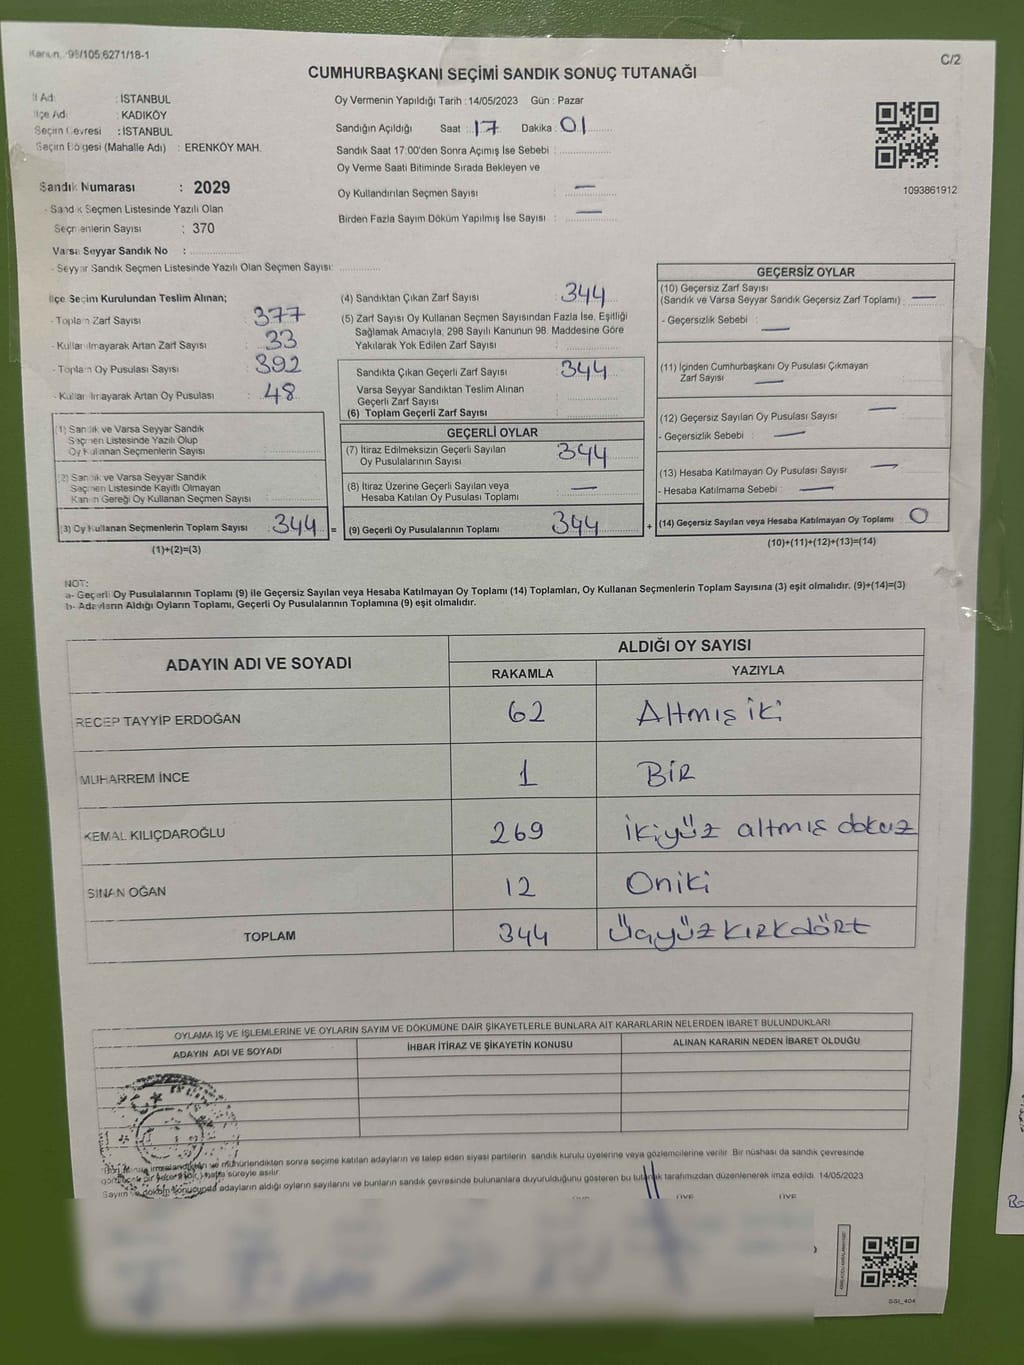 C/2
CUMHURBAŞKANI SEÇİMİ SANDIK SONUÇ TUTANAĞI
İl Adı : İSTANBUL
İlçe Adı : KADIKÖY
Seçim Çevresi : İSTANBUL
Seçim Bölgesi (Mahalle Adı) : ERENKÖY MAH.
Sandık Numarası : 2029
- Sandık Seçmen Listesinde Yazılı Olan
Seçmenlerin Sayısı : 370
Varsa Seyyar Sandık No :
- Seyyar Sandık Seçmen Listesinde Yazılı Olan Seçmen Sayısı:
Oy Vermenin Yapıldığı Tarih : 14/05/2023 Gün : Pazar
Sandığın Açıldığı Saat : 17 Dakika : 01
Sandık Saat 17:00'den Sonra Açımış İse Sebebi :
Oy Verme Saati Bitiminde Sırada Bekleyen ve
Oy Kullandırılan Seçmen Sayısı : —
Birden Fazla Sayım Döküm Yapılmış İse Sayısı : —
1093861912
İlçe Seçim Kurulundan Teslim Alınan;
- Toplam Zarf Sayısı 377
- Kullanılmayarak Artan Zarf Sayısı 33
- Toplam Oy Pusulası Sayısı 392
- Kullanılmayarak Artan Oy Pusulası 48
(1) Sandık ve Varsa Seyyar Sandık
Seçmen Listesinde Yazılı Olup
Oy Kullanan Seçmenlerin Sayısı
(2) Sandık ve Varsa Seyyar Sandık
Seçmen Listesinde Kayıtlı Olmayan
Kanun Gereği Oy Kullanan Seçmen Sayısı
(3) Oy Kullanan Seçmenlerin Toplam Sayısı 344 =
(1)+(2)=(3)
(4) Sandıktan Çıkan Zarf Sayısı 344
(5) Zarf Sayısı Oy Kullanan Seçmen Sayısından Fazla İse, Eşitliği
Sağlamak Amacıyla, 298 Sayılı Kanunun 98. Maddesine Göre
Yakılarak Yok Edilen Zarf Sayısı
Sandıkta Çıkan Geçerli Zarf Sayısı 344
Varsa Seyyar Sandıktan Teslim Alınan
Geçerli Zarf Sayısı
(6) Toplam Geçerli Zarf Sayısı
GEÇERLİ OYLAR
(7) İtiraz Edilmeksizin Geçerli Sayılan
Oy Pusulalarının Sayısı 344
(8) İtiraz Üzerine Geçerli Sayılan veya
Hesaba Katılan Oy Pusulası Toplamı —
(9) Geçerli Oy Pusulalarının Toplamı 344 +
GEÇERSİZ OYLAR
(10) Geçersiz Zarf Sayısı
(Sandık ve Varsa Seyyar Sandık Geçersiz Zarf Toplamı) : —
- Geçersizlik Sebebi : —
(11) İçinden Cumhurbaşkanı Oy Pusulası Çıkmayan
Zarf Sayısı —
(12) Geçersiz Sayılan Oy Pusulası Sayısı —
- Geçersizlik Sebebi : —
(13) Hesaba Katılmayan Oy Pusulası Sayısı —
- Hesaba Katılmama Sebebi : —
(14) Geçersiz Sayılan veya Hesaba Katılmayan Oy Toplamı 0
(10)+(11)+(12)+(13)=(14)
NOT:
a- Geçerli Oy Pusulalarının Toplamı (9) ile Geçersiz Sayılan veya Hesaba Katılmayan Oy Toplamı (14) Toplamları, Oy Kullanan Seçmenlerin Toplam Sayısına (3) eşit olmalıdır. (9)+(14)=(3)
b- Adayların Aldığı Oyların Toplamı, Geçerli Oy Pusulalarının Toplamına (9) eşit olmalıdır.
ADAYIN ADI VE SOYADI ALDIĞI OY SAYISI
RAKAMLA YAZIYLA
RECEP TAYYİP ERDOĞAN 62 Altmış iki
MUHARREM İNCE 1 Bir
KEMAL KILIÇDAROĞLU 269 ikiyüz altmış dokuz
SİNAN OĞAN 12 Oniki
TOPLAM 344 Üçyüzkırkdört
OYLAMA İŞ VE İŞLEMLERİNE VE OYLARIN SAYIM VE DÖKÜMÜNE DAİR ŞİKAYETLERLE BUNLARA AİT KARARLARIN NELERDEN İBARET BULUNDUKLARI
ADAYIN ADI VE SOYADI İHBAR İTİRAZ VE ŞİKAYETİN KONUSU ALINAN KARARIN NEDEN İBARET OLDUĞU
imzalandıktan ve mühürlendikten sonra seçime katılan adayların ve talep eden siyasi partilerin sandık kurulu üyelerine veya gözlemcilerine verilir. Bir nüshası da sandık çevresinde
hafta süreyle asılır.
Sayım ve döküm sonucunda adayların aldığı oyların sayılarını ve bunların sandık çevresinde bulunanlara duyurulduğunu gösteren bu tutanak tarafımızdan düzenlenerek imza edildi. 14/05/2023
ÜYE ÜYE